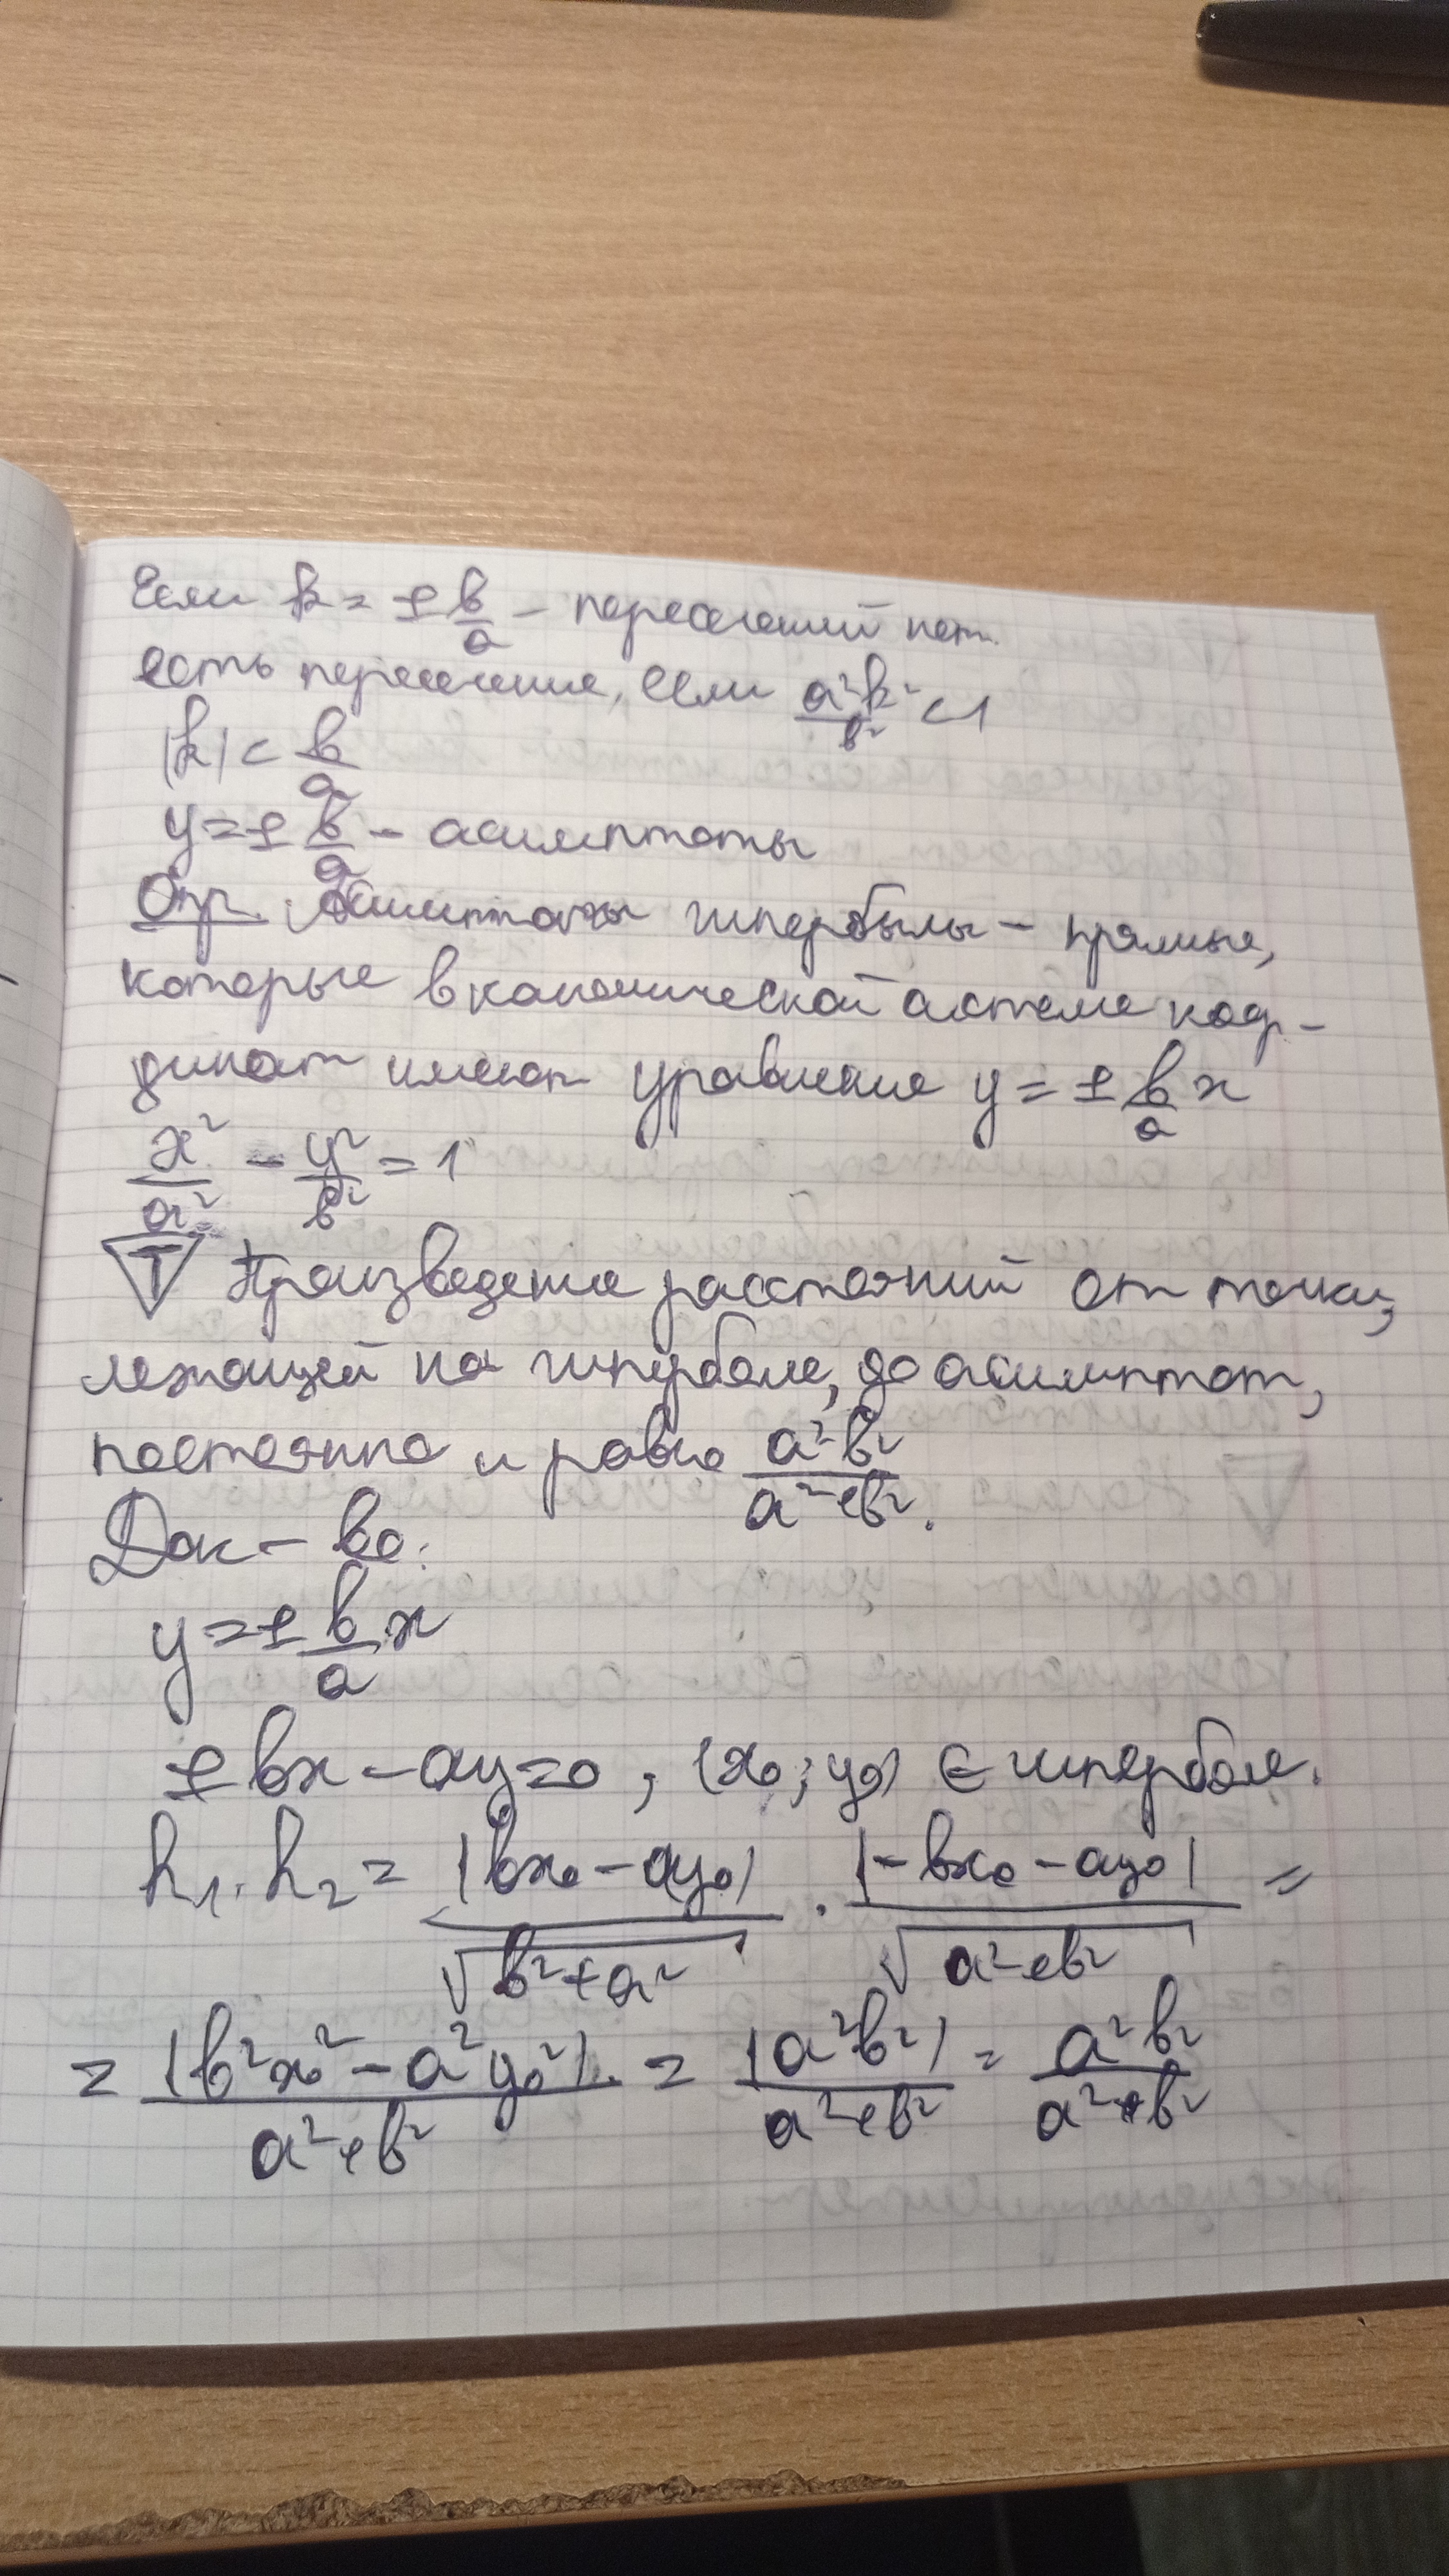 Если k = ± в/a – пересечений нет.
есть пересечение, если a²k²/в² < 1
|k| < в/a
y = ± в/a – асимптоты
Опр. Асимптоты гиперболы – прямые,
которые в канонической системе коор-
динат имеют уравнение y = ± в/a x
x²/a² – y²/в² = 1
T Произведение расстояний от точки,
лежащей на гиперболе, до асимптот,
постоянно и равно a²в²/a²+в².
Док – во:
y = ± в/a x
± вx – ay = 0 , (x₀ ; y₀) ∈ гиперболе.
h₁ · h₂ = |вx₀ – ay₀|/√в²+a² · |–вx₀ – ay₀|/√a²+в² =
= |в²x₀² – a²y₀²|/a²+в² = |a²в²|/a²+в² = a²в²/a²+в²